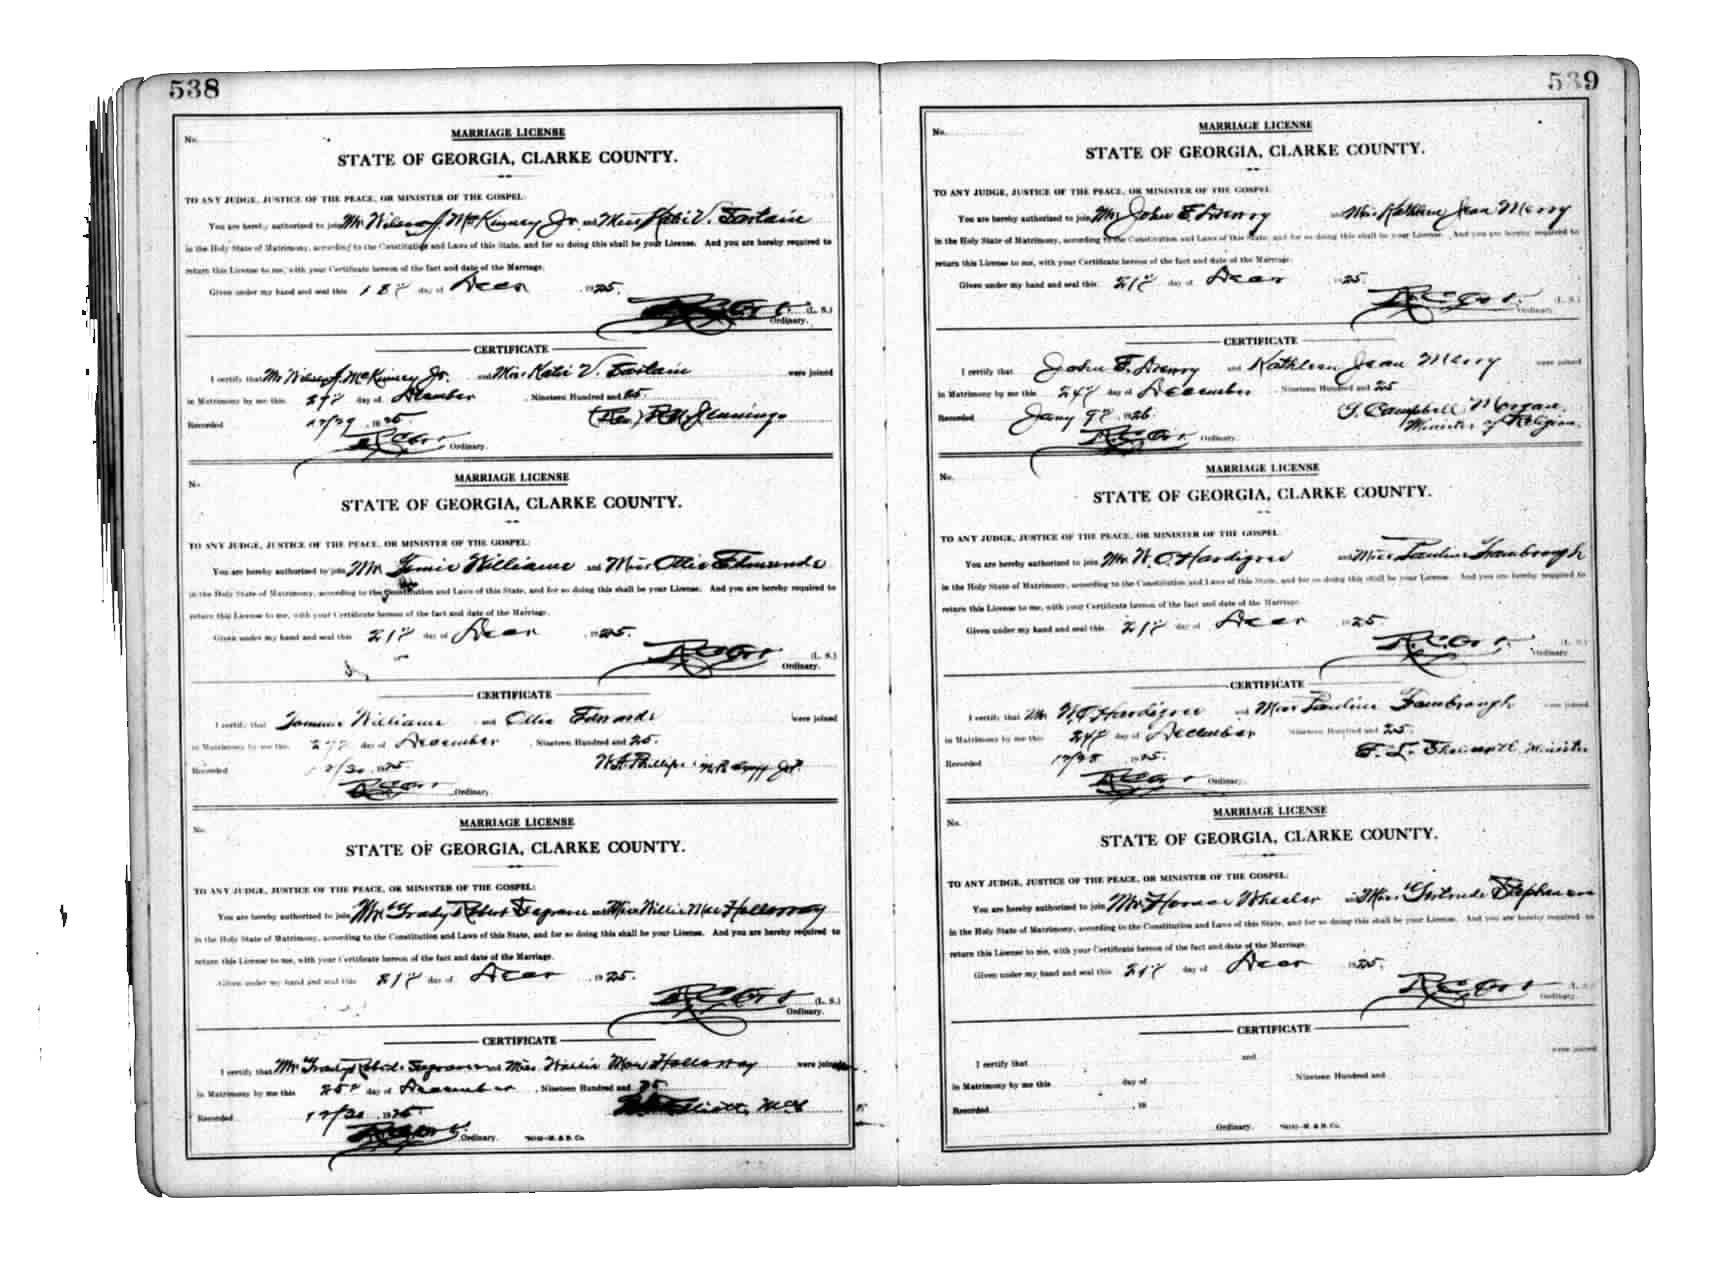 538
No.
MARRIAGE LICENSE
STATE OF GEORGIA, CLARKE COUNTY.
TO ANY JUDGE, JUSTICE OF THE PEACE, OR MINISTER OF THE GOSPEL:
You are hereby authorized to join Mr. J. McKinney Jr. and Miss Katie V.
in the Holy State of Matrimony, according to the Constitution and Laws of this State, and for so doing this shall be your License. And you are hereby required to
return this License to me, with your Certificate hereon of the fact and date of the Marriage.
Given under my hand and seal this 18 day of Decr 1925.
(L. S.)
Ordinary.
CERTIFICATE
I certify that Mr J. McKinney Jr. and Miss Katie V. were joined
in Matrimony by me this day of December, Nineteen Hundred and 25.
Recorded 12/29, 1925 (Rev) Jennings
Ordinary.
No.
MARRIAGE LICENSE
STATE OF GEORGIA, CLARKE COUNTY.
TO ANY JUDGE, JUSTICE OF THE PEACE, OR MINISTER OF THE GOSPEL:
You are hereby authorized to join Mr. Williams and Miss Ollie Edwards
in the Holy State of Matrimony, according to the Constitution and Laws of this State, and for so doing this shall be your License. And you are hereby required to
return this License to me, with your Certificate hereon of the fact and date of the Marriage.
Given under my hand and seal this 21 day of Decr 1925.
(L. S.)
Ordinary.
CERTIFICATE
I certify that Tommie Williams and Ollie Edwards were joined
in Matrimony by me this day of December, Nineteen Hundred and 25.
Recorded 12/30 1925 W.A. Phillips
Ordinary.
No.
MARRIAGE LICENSE
STATE OF GEORGIA, CLARKE COUNTY.
TO ANY JUDGE, JUSTICE OF THE PEACE, OR MINISTER OF THE GOSPEL:
You are hereby authorized to join Mr. Grady Robert Segraves and Miss Willie Mae Holloway
in the Holy State of Matrimony, according to the Constitution and Laws of this State, and for so doing this shall be your License. And you are hereby required to
return this License to me, with your Certificate hereon of the fact and date of the Marriage.
Given under my hand and seal this 21 day of Decr 1925.
(L. S.)
Ordinary.
CERTIFICATE
I certify that Mr Grady Robert Segraves and Miss Willie Mae Holloway were joined
in Matrimony by me this 25 day of December, Nineteen Hundred and 25
Recorded 12/30, 1925 Elliott, M.G.
Ordinary.
539
No.
MARRIAGE LICENSE
STATE OF GEORGIA, CLARKE COUNTY.
TO ANY JUDGE, JUSTICE OF THE PEACE, OR MINISTER OF THE GOSPEL
You are hereby authorized to join Mr. John E. Drewry and Miss Kathleen Jean Merry
in the Holy State of Matrimony, according to the Constitution and Laws of this State, and for so doing this shall be your License. And you are hereby required to
return this License to me, with your Certificate hereon of the fact and date of the Marriage.
Given under my hand and seal this 21 day of Decr 1925.
(L. S.)
Ordinary.
CERTIFICATE
I certify that John E. Drewry and Kathleen Jean Merry were joined
in Matrimony by me this 24 day of December, Nineteen Hundred and 25
Recorded Jany 9 1926. Campbell Morgan.
Minister of Religion.
Ordinary.
No.
MARRIAGE LICENSE
STATE OF GEORGIA, CLARKE COUNTY.
TO ANY JUDGE, JUSTICE OF THE PEACE, OR MINISTER OF THE GOSPEL
You are hereby authorized to join Mr. W. C. Hardigree and Miss Pauline Fambrough
in the Holy State of Matrimony, according to the Constitution and Laws of this State, and for so doing this shall be your License. And you are hereby required to
return this License to me, with your Certificate hereon of the fact and date of the Marriage.
Given under my hand and seal this 21 day of Decr 1925.
(L. S.)
Ordinary.
CERTIFICATE
I certify that Mr. W. C. Hardigree and Miss Pauline Fambrough were joined
in Matrimony by me this 24 day of December Nineteen Hundred and 25.
Recorded 12/28 1925. Minister
Ordinary.
No.
MARRIAGE LICENSE
STATE OF GEORGIA, CLARKE COUNTY.
TO ANY JUDGE, JUSTICE OF THE PEACE, OR MINISTER OF THE GOSPEL:
You are hereby authorized to join Mr. Wheeler and Miss Gertrude Stephenson
in the Holy State of Matrimony, according to the Constitution and Laws of this State, and for so doing this shall be your License. And you are hereby required to
return this License to me, with your Certificate hereon of the fact and date of the Marriage.
Given under my hand and seal this 21 day of Decr 1925.
(L. S.)
Ordinary.
CERTIFICATE
I certify that and were joined
in Matrimony by me this day of Nineteen Hundred and
Recorded , 19
Ordinary.